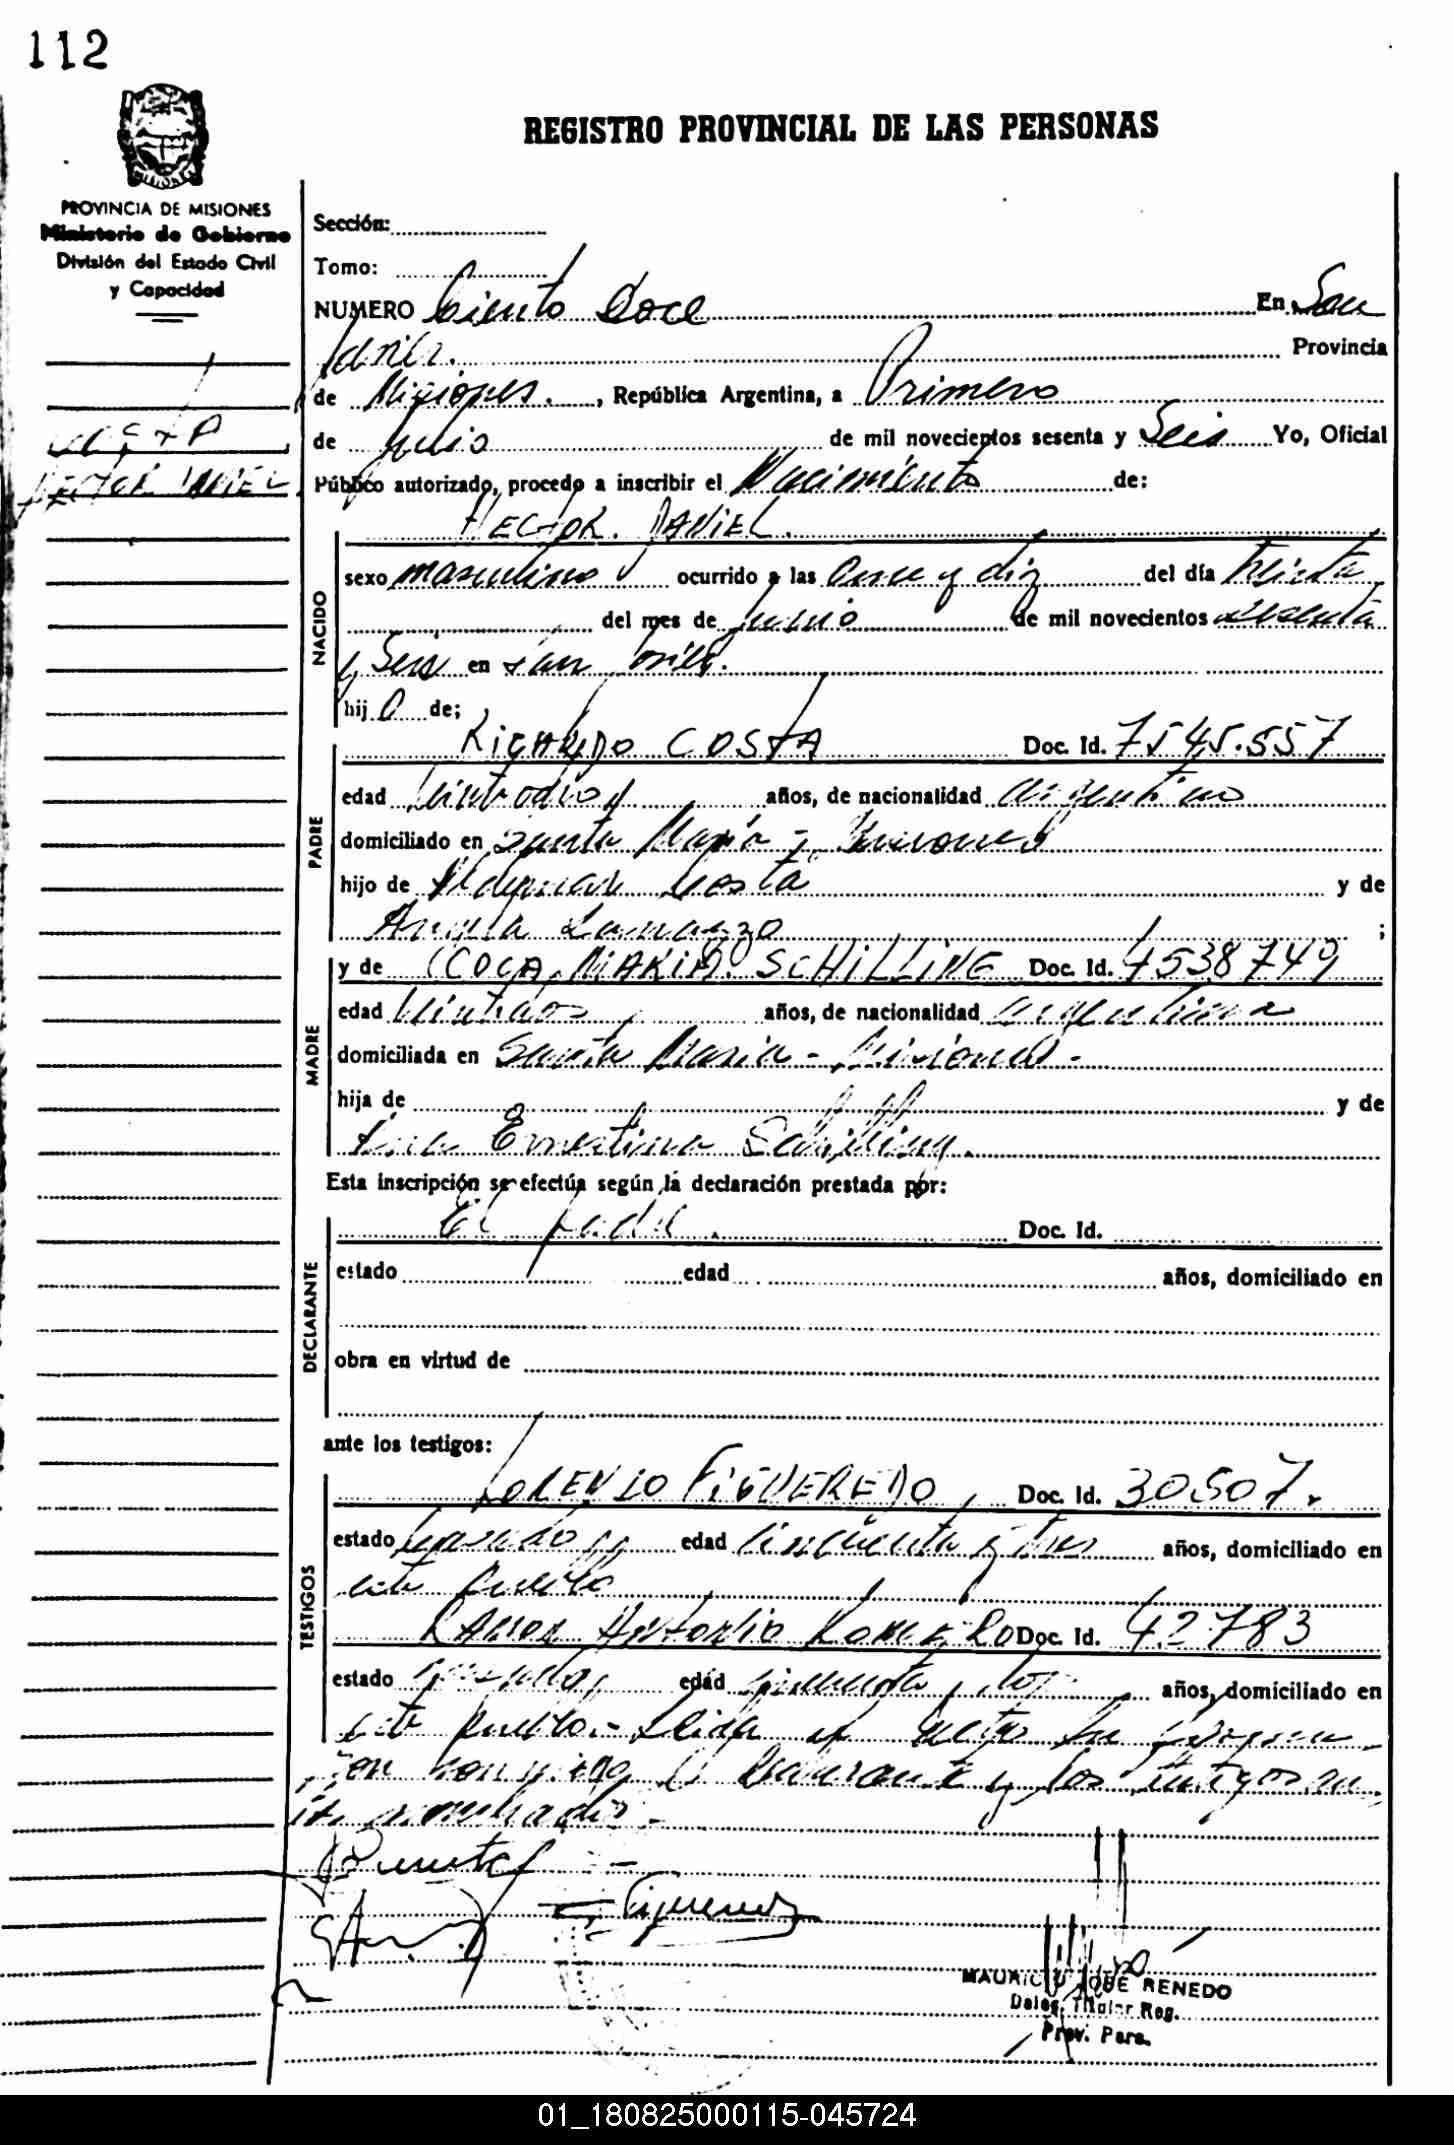 112
REGISTRO PROVINCIAL DE LAS PERSONAS
MISIONES
PROVINCIA DE MISIONES
Ministerio de Gobierno
División del Estado Civil
y Capacidad
Sección:
Tomo:
NUMERO Ciento Doce En San
Javier. Provincia
de Misiones. , República Argentina, a Primero
de Julio de mil novecientos sesenta y Seis Yo, Oficial
COSTA
HECTOR DANIEL
Público autorizado, procedo a inscribir el Nacimiento de:
HECTOR. DANIEL.
NACIDO
sexo masculino ocurrido a las once y diez del día treinta
del mes de junio de mil novecientos sesenta
y Seis en San Javier.
hij o de;
PADRE
RICARDO COSTA Doc. Id. 7545.557
edad años, de nacionalidad argentino
domiciliado en Santa María - Misiones
hijo de Costa y de
;
MADRE
y de COCA MARIA SCHILLING Doc. Id. 4538749
edad veintidos, años, de nacionalidad argentina
domiciliada en Santa María - Misiones -
hija de y de
Ernestina Schilling.
Esta inscripción se efectúa según la declaración prestada por:
DECLARANTE
El padre. Doc. Id.
estado edad años, domiciliado en
obra en virtud de
ante los testigos:
TESTIGOS
LORENZO FIGUEREDO, Doc. Id. 30507.
estado casado edad cincuenta y tres años, domiciliado en
este pueblo
RAMON ANTONIO ROMERO Doc. Id. 42783
estado casado, edad años, domiciliado en
este pueblo.- Leida el acta
el declarante y los testigos
MAURICIO JOSE RENEDO
Deleg. Titular Reg.
Prov. Pers.
01_180825000115-045724